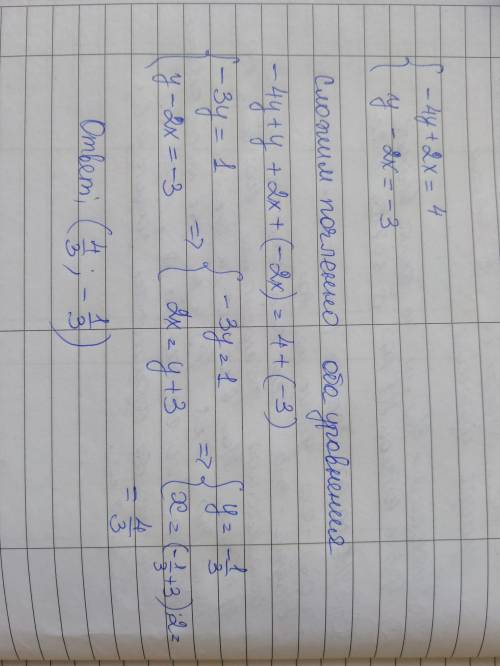 { -4y + 2x = 4
{ y - 2x = -3
Сложим почленно оба уровнения
-4y + y + 2x + (-2x) = 4 + (-3)
{ -3y = 1 => { -3y = 1 => { y = -1/3
{ y - 2x = -3 { 2x = y + 3 { x = (-1/3 + 3) : 2 =
= 4/3
Ответ: (4/3 ; -1/3)